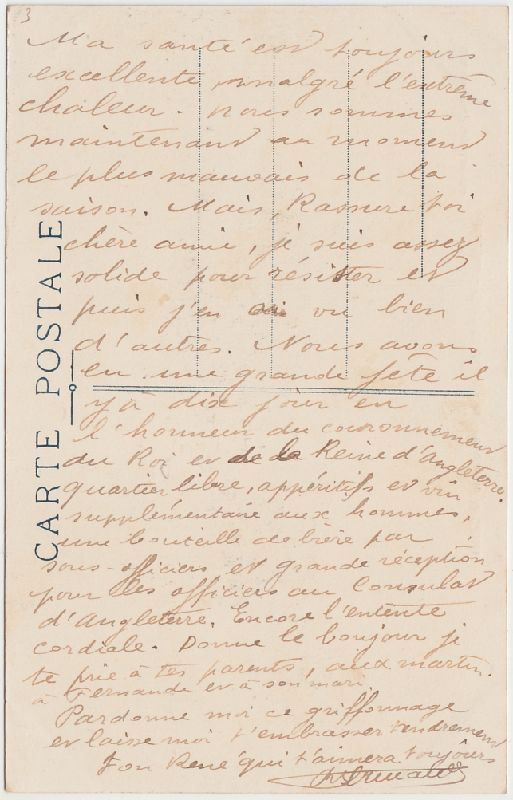 3
Ma santé est toujours
excellente malgré l'extrême
chaleur. nous sommes
maintenant au moment
le plus mauvais de la
saison. Mais, Rassure toi
chère amie, je suis assez
solide pour résister et
puis j'en ai vu bien
d'autres. Nous avons
eu une grande fête il
y a dix jour en
l'honneur du couronnement
du Roi et de la Reine d'Angleterre.
quartier libre, appéritifs et vin
supplémentaire aux hommes,
une bouteille de bière par
sous-officiers et grande réception
pour les officiers au Consulat
d'Angleterre. Encore l'entente
cordiale. Donne le boujour je
te prie à tes parents, aux martin.
à Fernande et à son mari
Pardonne moi ce griffonnage
et laise moi t'embrasser tendrement
Ton René qui t'aimera toujours
CARTE POSTALE